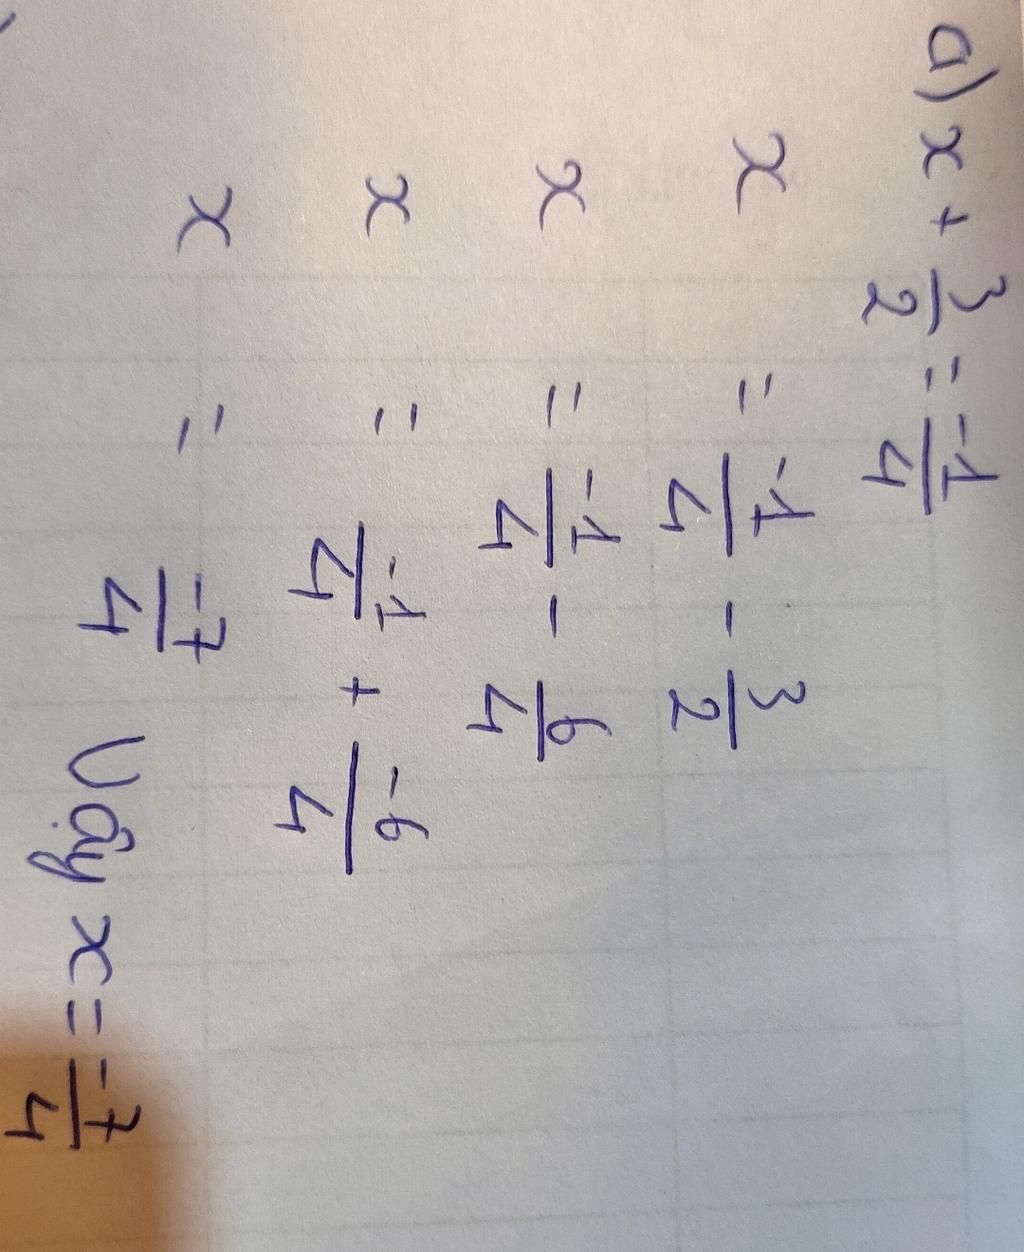 a) x + 3/2 = -1/4
x = -1/4 - 3/2
x = -1/4 - 6/4
x = -1/4 + -6/4
x = -7/4 Vậy x = -7/4